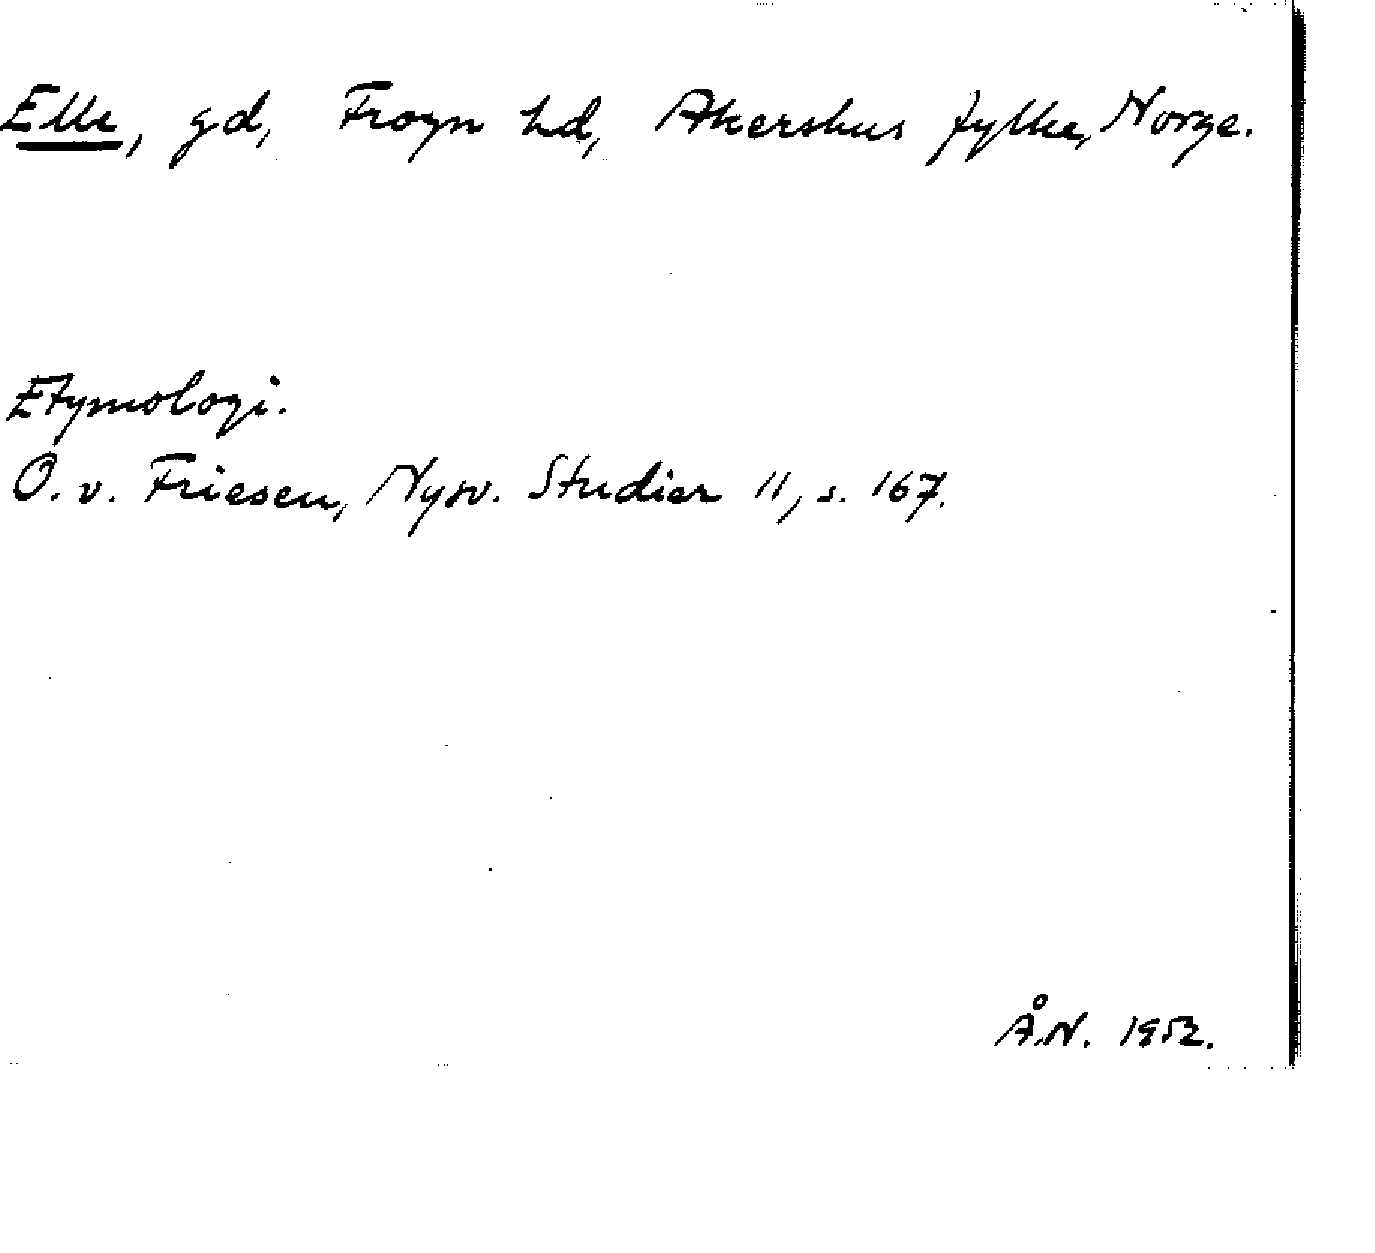 Elle, gd, Frogn hd, Akershus fylke, Norge.
Etymologi.
O. v. Friesen, Nysv. Studier 11, s. 167.
Å.N. 1952.